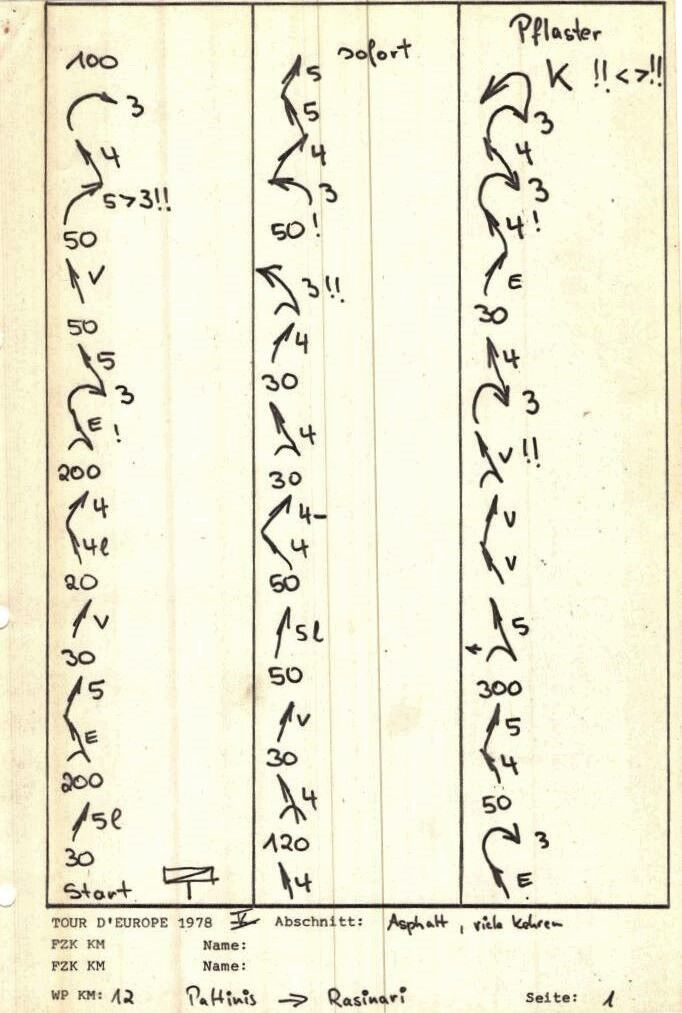 100
3
4
5>3!!
50
V
50
5
3
E !
200
4
4l
20
V
30
5
E
200
5l
30
Start
sofort
5
5
4
3
50!
3!!
4
30
4
30
4-
4
50
5l
50
V
30
4
120
4
Pflaster
K !! < >!!
3
4
3
4!
E
30
4
3
V!!
V
V
5
300
5
4
50
3
E
TOUR D'EUROPE 1978 V Abschnitt: Asphalt, viele Kehren
FZK KM Name:
FZK KM Name:
WP KM: 12 Paltinis → Rasinari Seite: 1